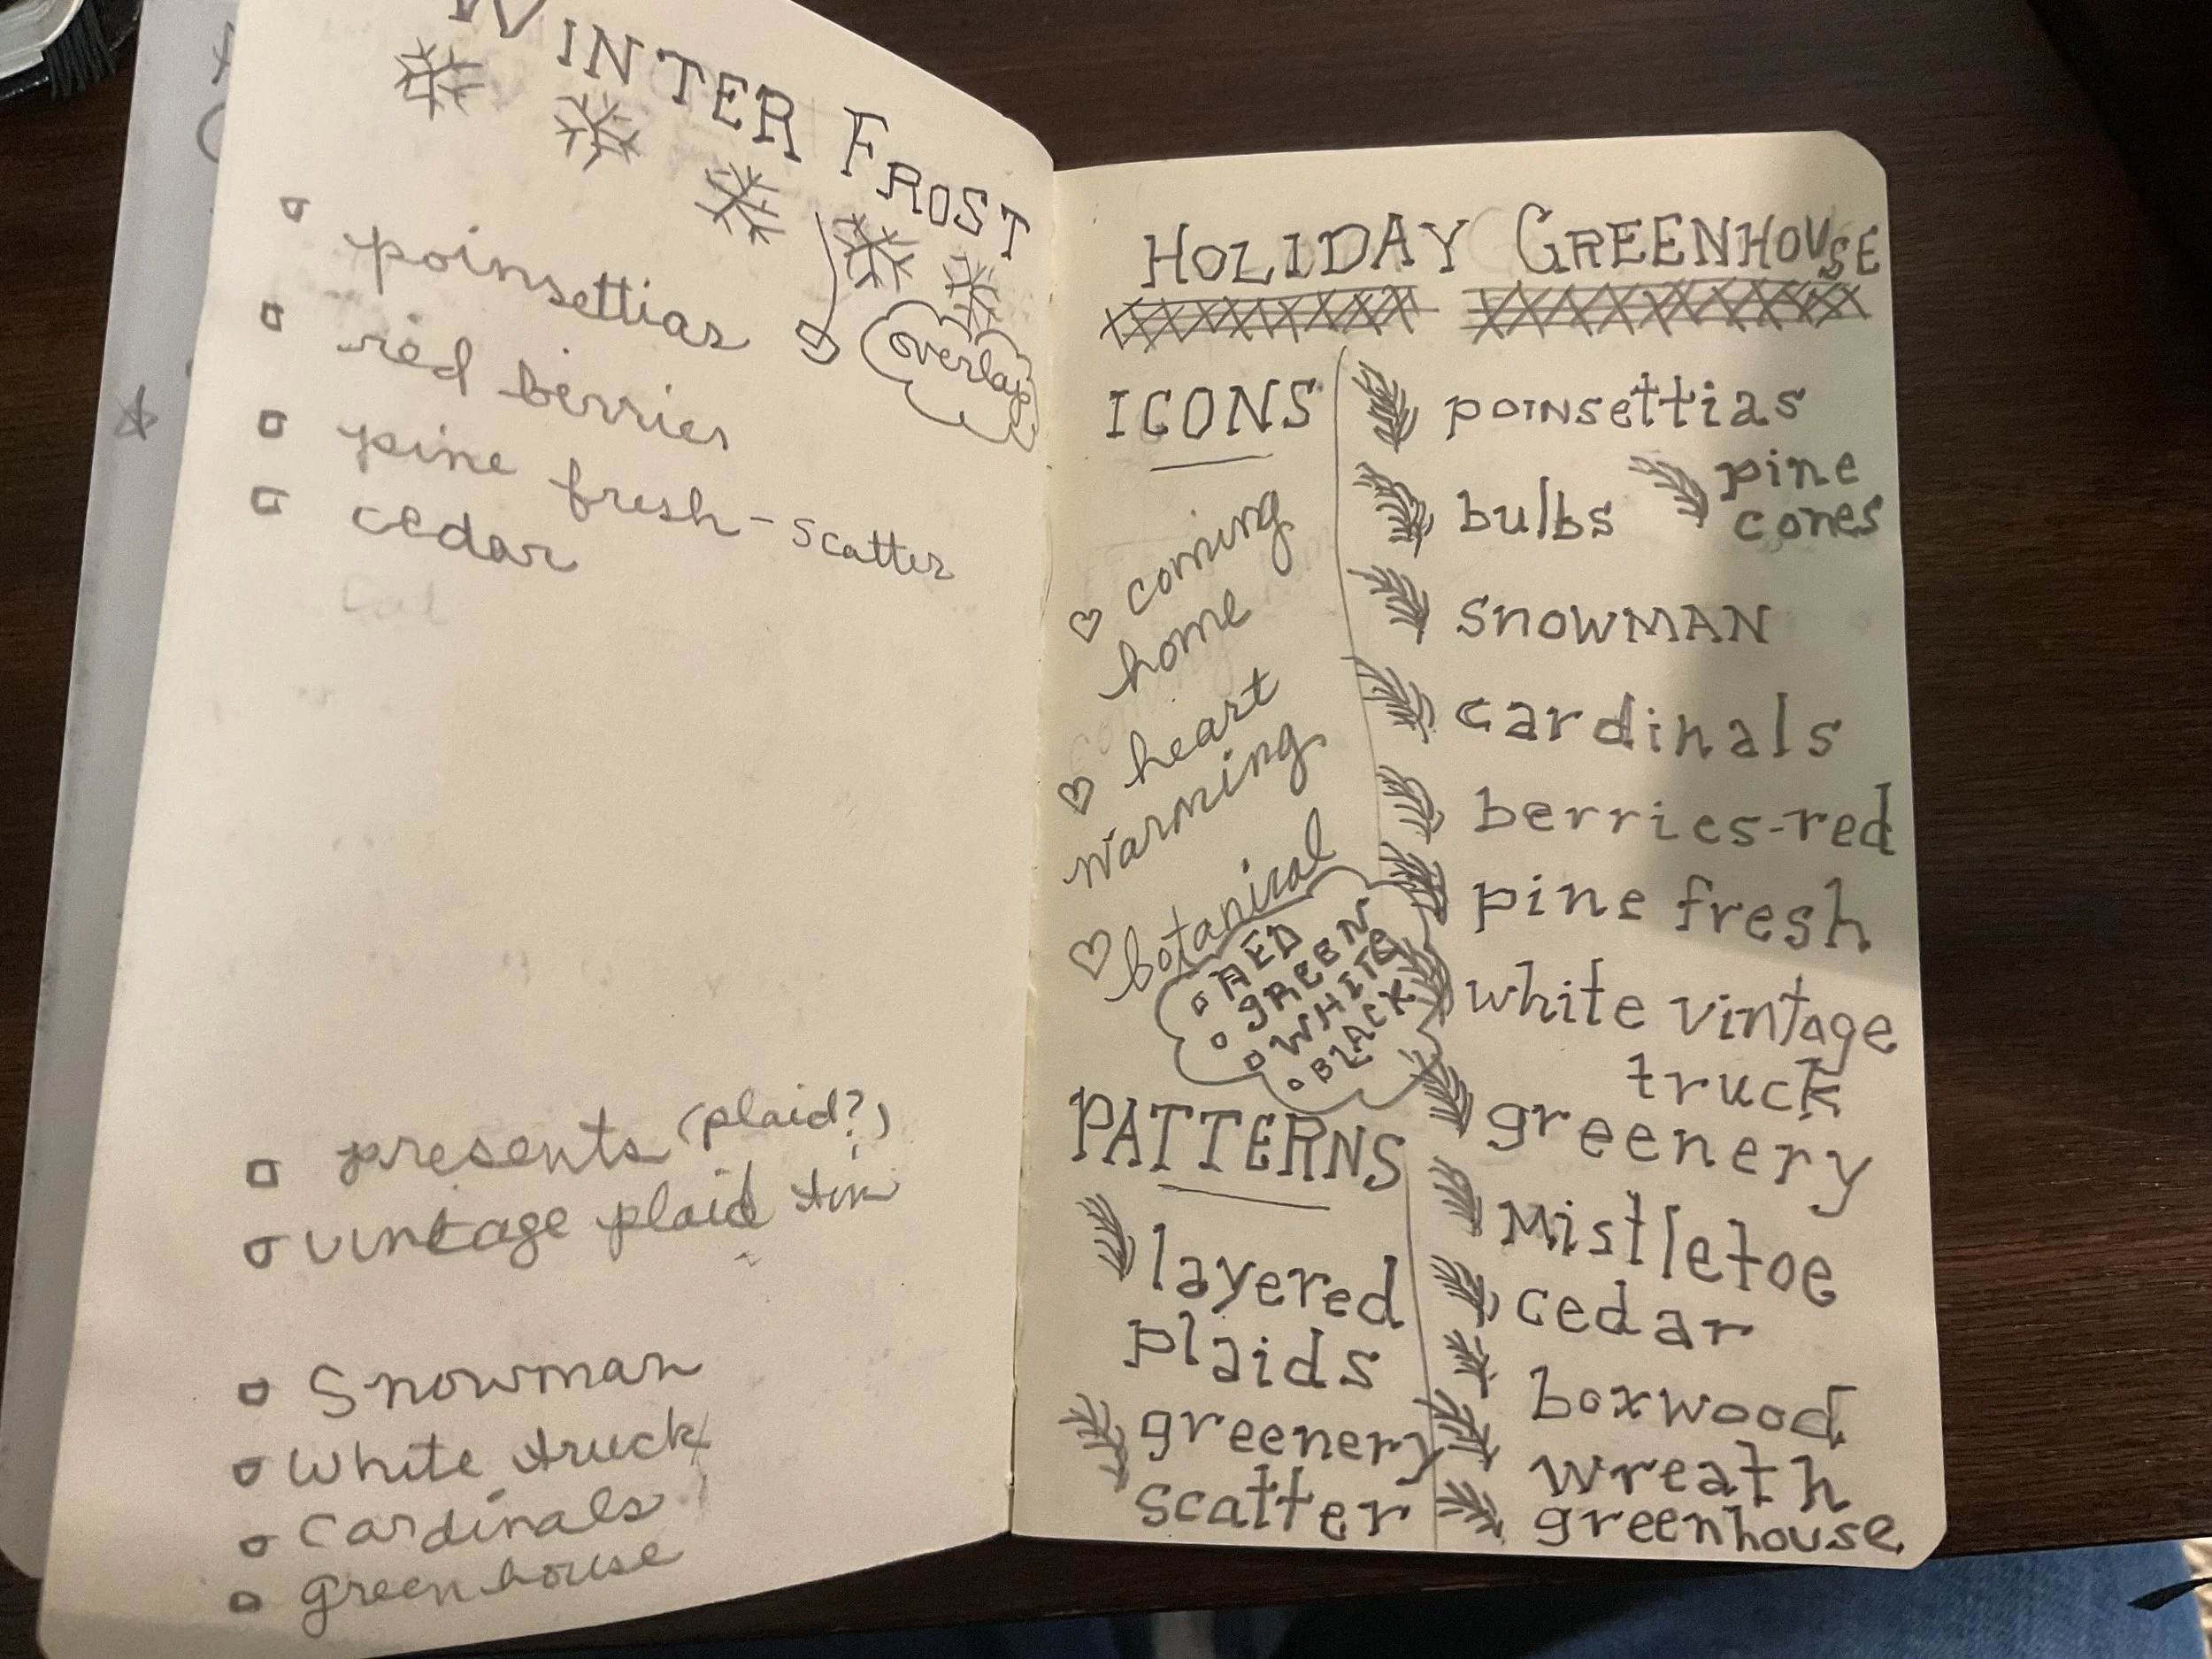 WINTER FROST
poinsettias
overlap
red berries
pine fresh-scatter
cedar
presents (plaid?)
vintage plaid tin
Snowman
White truck
Cardinals
greenhouse
HOLIDAY GREENHOUSE
ICONS
coming
home
heart
warming
botanical
RED
GREEN
WHITE
BLACK
PATTERNS
layered
plaids
greenery
scatter
poinsettias
bulbs
pine
cones
SNOWMAN
cardinals
berries-red
pine fresh
white vintage
truck
greenery
Mistletoe
cedar
boxwood
wreath
greenhouse